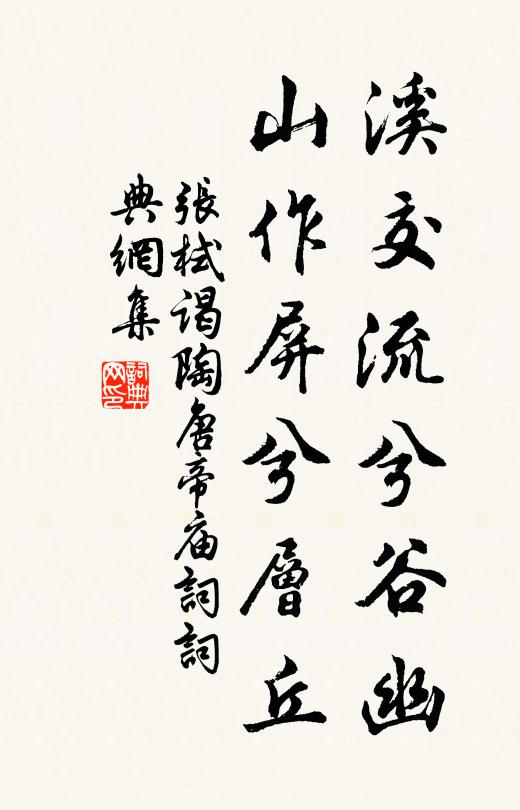 溪交流兮谷幽
山作屏兮層丘
張栻謁陶唐帝廟詞詞
典網集
詞典
网印